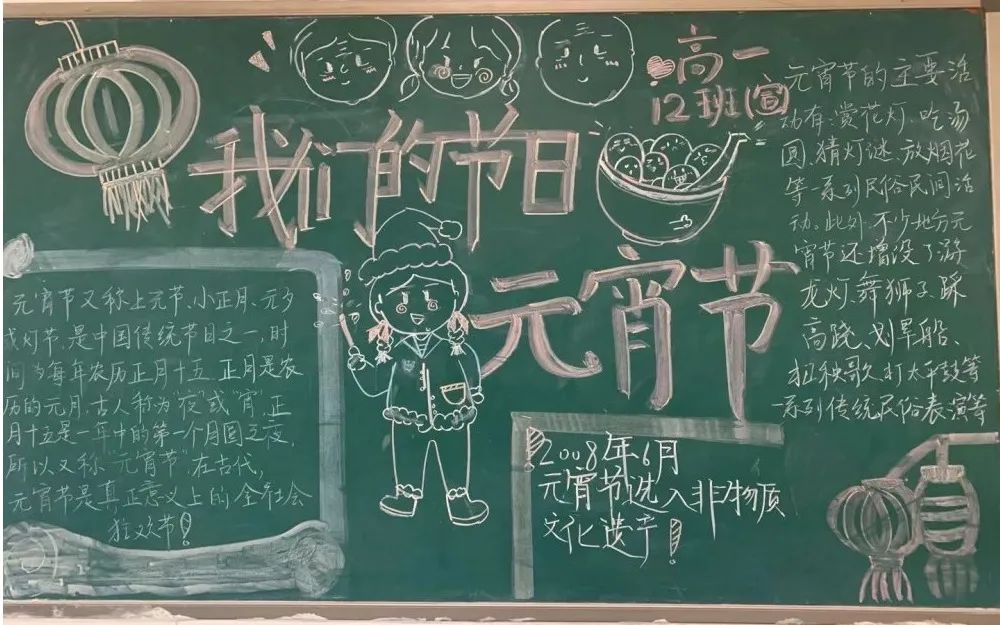 我们的节日
元宵节
高一
12班(宣)
元宵节又称上元节、小正月、元夕
或灯节,是中国传统节日之一,时
间为每年农历正月十五,正月是农
历的元月,古人称为"夜"或"宵",正
月十五是一年中的第一个月圆之夜,
所以又称"元宵节",在古代,
元宵节是真正意义上的全社会
狂欢节!
2008年6月
元宵节选入非物质
文化遗产!
元宵节的主要活
动有:赏花灯、吃汤
圆、猜灯谜、放烟花
等一系列民俗民间活
动。此外,不少地方元
宵节还增设了游
龙灯、舞狮子、踩
高跷、划旱船、
扭秧歌、打太平鼓等
一系列传统民俗表演等